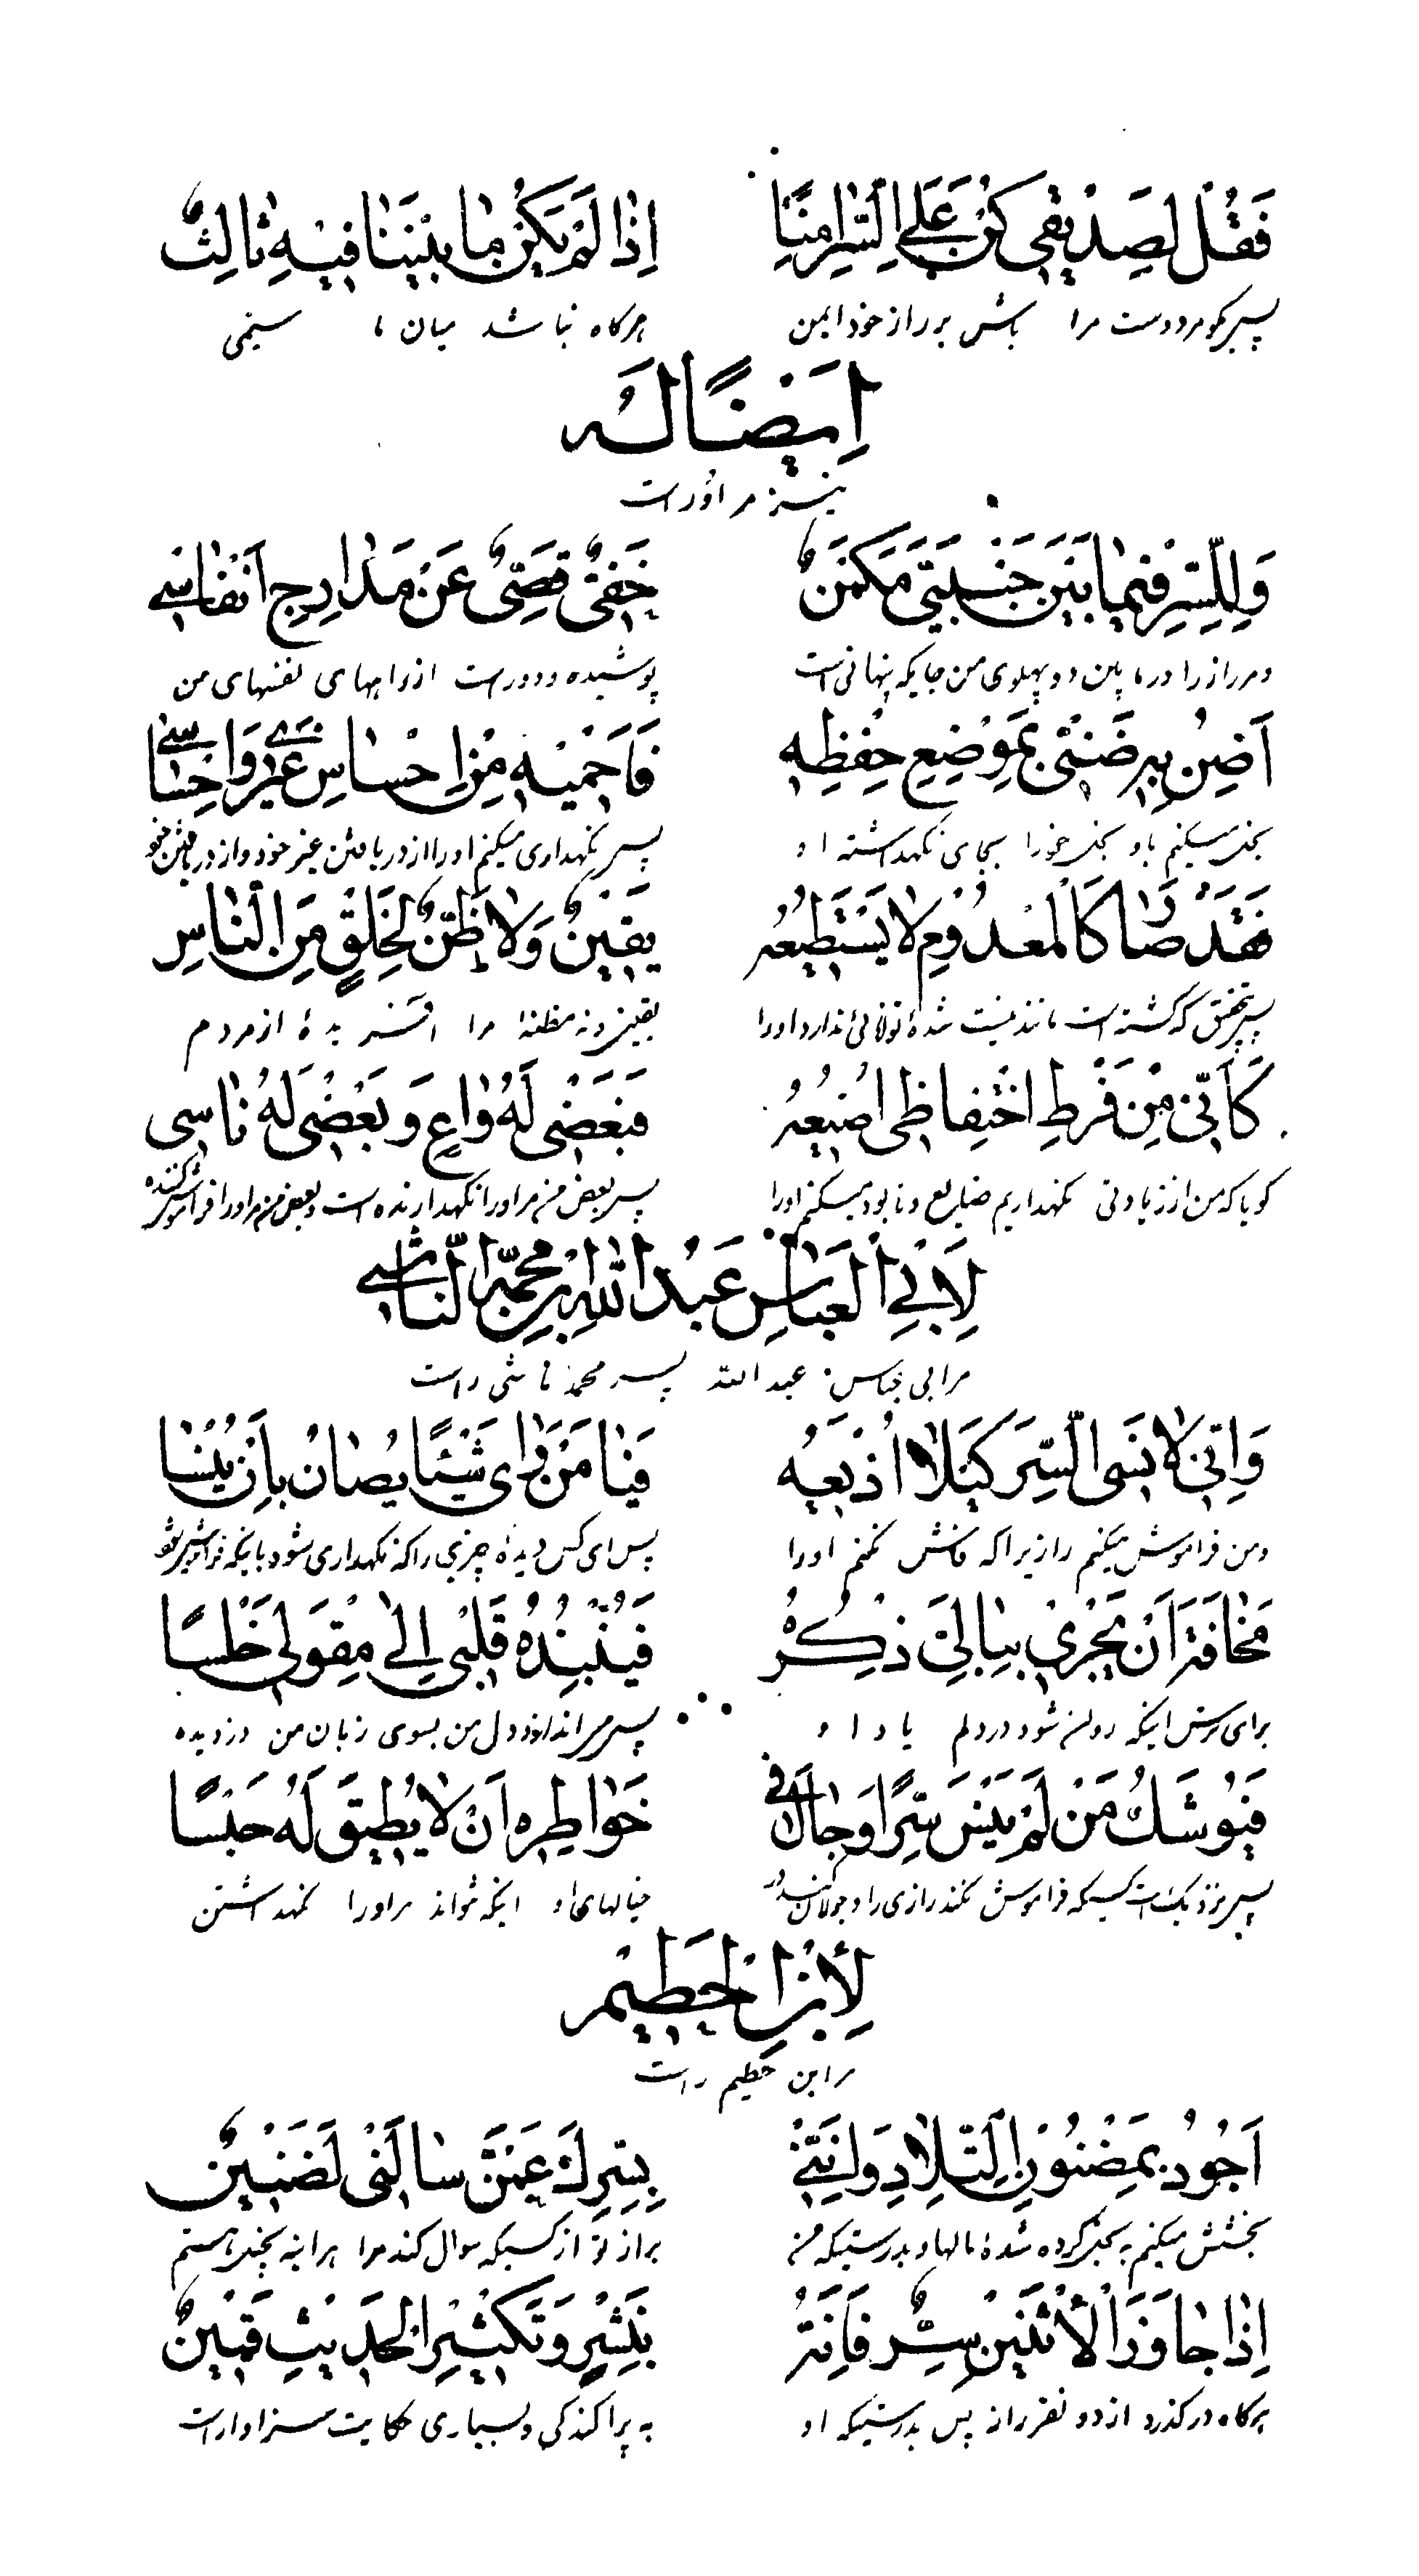 فَقُلْ لِصَدِيقِي كُنْ عَلَى السِّرِّ اٰمِنًا اِذٰا لَمْ يَكُنْ مٰا بَيْنَنٰا فيْهِ ثٰالِثٌ
پس بگو مر دوست مرا باش بر راز خود ایمن هرگاه نباشد میان ما سیّمی
اَيْضًا لَهُ
نیز مر اوراست
وَلِلسِّرِّ فيمٰا بَيْنَ جَنْبَيَّ مَكْمَنٌ خَفِيٌّ قَصِيٌّ عَنْ مَدٰارِجِ اَنْفٰاسي
و مر راز را در مابین دو پهلوی من جایگه پنهانی است پوشیده و دور است از راههای نفسهای من
اَضِنُّ بِهِ ضَنّي بِمَوْضِعِ حِفْظِهِ فَاَحْميْهِ مِنْ اِحْسٰاسِ غَيْري وَاِحْسٰاسي
بخل میکنم باو بخل خود را بجای نگهداشته او پس نگهداری میکنم او را از دریافتن غیر خود و از دریافتن خود
فَقَدْ صٰارَ كَالْمَعْدُوْمِ لٰا يَسْتَطيعُهُ يَقيْنٌ وَلٰا ظَنٌّ لِخَلْقٍ مِنَ النّٰاسِ
پس بتحقیق که گشته است مانند نیست شدهٔ توانائی ندارد او را یقین و نه مظنه مرا افسریدهٔ از مردم
كَاَنّي مِنْ فَرْطِ احْتِفٰاظي اُضيْعُهُ فَبَعْضي لَهُ وٰاعٍ وَ بَعْضي لَهُ نٰاسي
گویا که من از زیادتی نگهداریم ضایع و نابود میکنم او را پس بعض من مر او را نگهدارنده است و بعض من مر او را فراموش کننده
لِاَبِي الْعَبّٰاسِ عَبْدِ اللّٰهِ ابْنِ مُحَمَّدٍ النّٰاشي
مر ابی عباس عبد الله پسر محمد ناشی راست
وَاِنّي لَاَنْسَى السِّرَّ كَيْلٰا اُذيْعَهُ فَيٰا مَنْ رَاٰى شَيْئًا يُصٰانُ بِاَنْ يُنْسٰا
و من فراموش میکنم راز برا که فاش نکنم او را پس ای کس دیدهٔ چیزی را که نگهداری شود باینکه فراموش شود
مَخٰافَةَ اَنْ يَجْرِيْ بِبٰالِيَ ذِكْرُهُ فَيَنْبِذُهُ قَلْبي اِلٰى مِقْوَلي خَلْسًا
برای ترس اینکه روان شود در دلم یاد او پس می اندازد دل من بسوی زبان من دزدیده
فَيُوْشَكُ مَنْ لَمْ يَنْسَ سِرًّا وَجٰالَ في خَوٰاطِرِهِ اَنْ لٰا يُطيْقَ لَهُ حَبْسًا
پس نزدیک است کسیکه فراموش نکند رازی را و جولان کند در خیالهای او اینکه نتواند مر او را نگهداشتن
لِابْنِ الْحَطيْمِ
مر ابن حطیم راست
اَجُوْدُ بِمَضْنُوْنِ التِّلٰادِ وَاِنَّنِيْ بِسِرِّكَ عَمَّنْ سٰالَنيْ لَضَنيْنٌ
بخشش میکنم به بخل کرده شدهٔ مالها و بدرستیکه من براز تو از کسیکه سوال کند مرا هراینه بخیل هستم
اِذٰا جٰاوَزَ الْاِثْنَيْنِ سِرٌّ فَاِنَّهُ بِنَشْرٍ وَ تَكْثيْرِ الْحَديْثِ قَميْنٌ
هرگاه درگذرد از دو نفر راز پس بدرستیکه او به پراکندگی و بسیاری حکایت سزاوار است